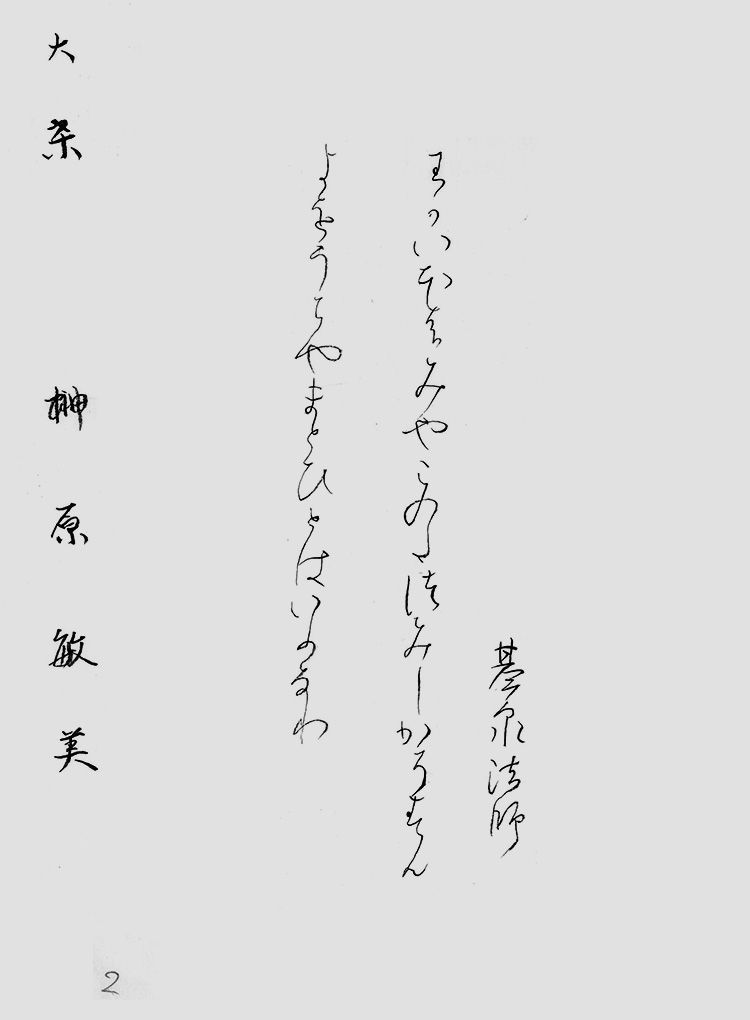 基泉法師
わかいほはみやこのたつみしかそすむ
よをうちやまとひとはいふなり
大桑 榊原敏美
2